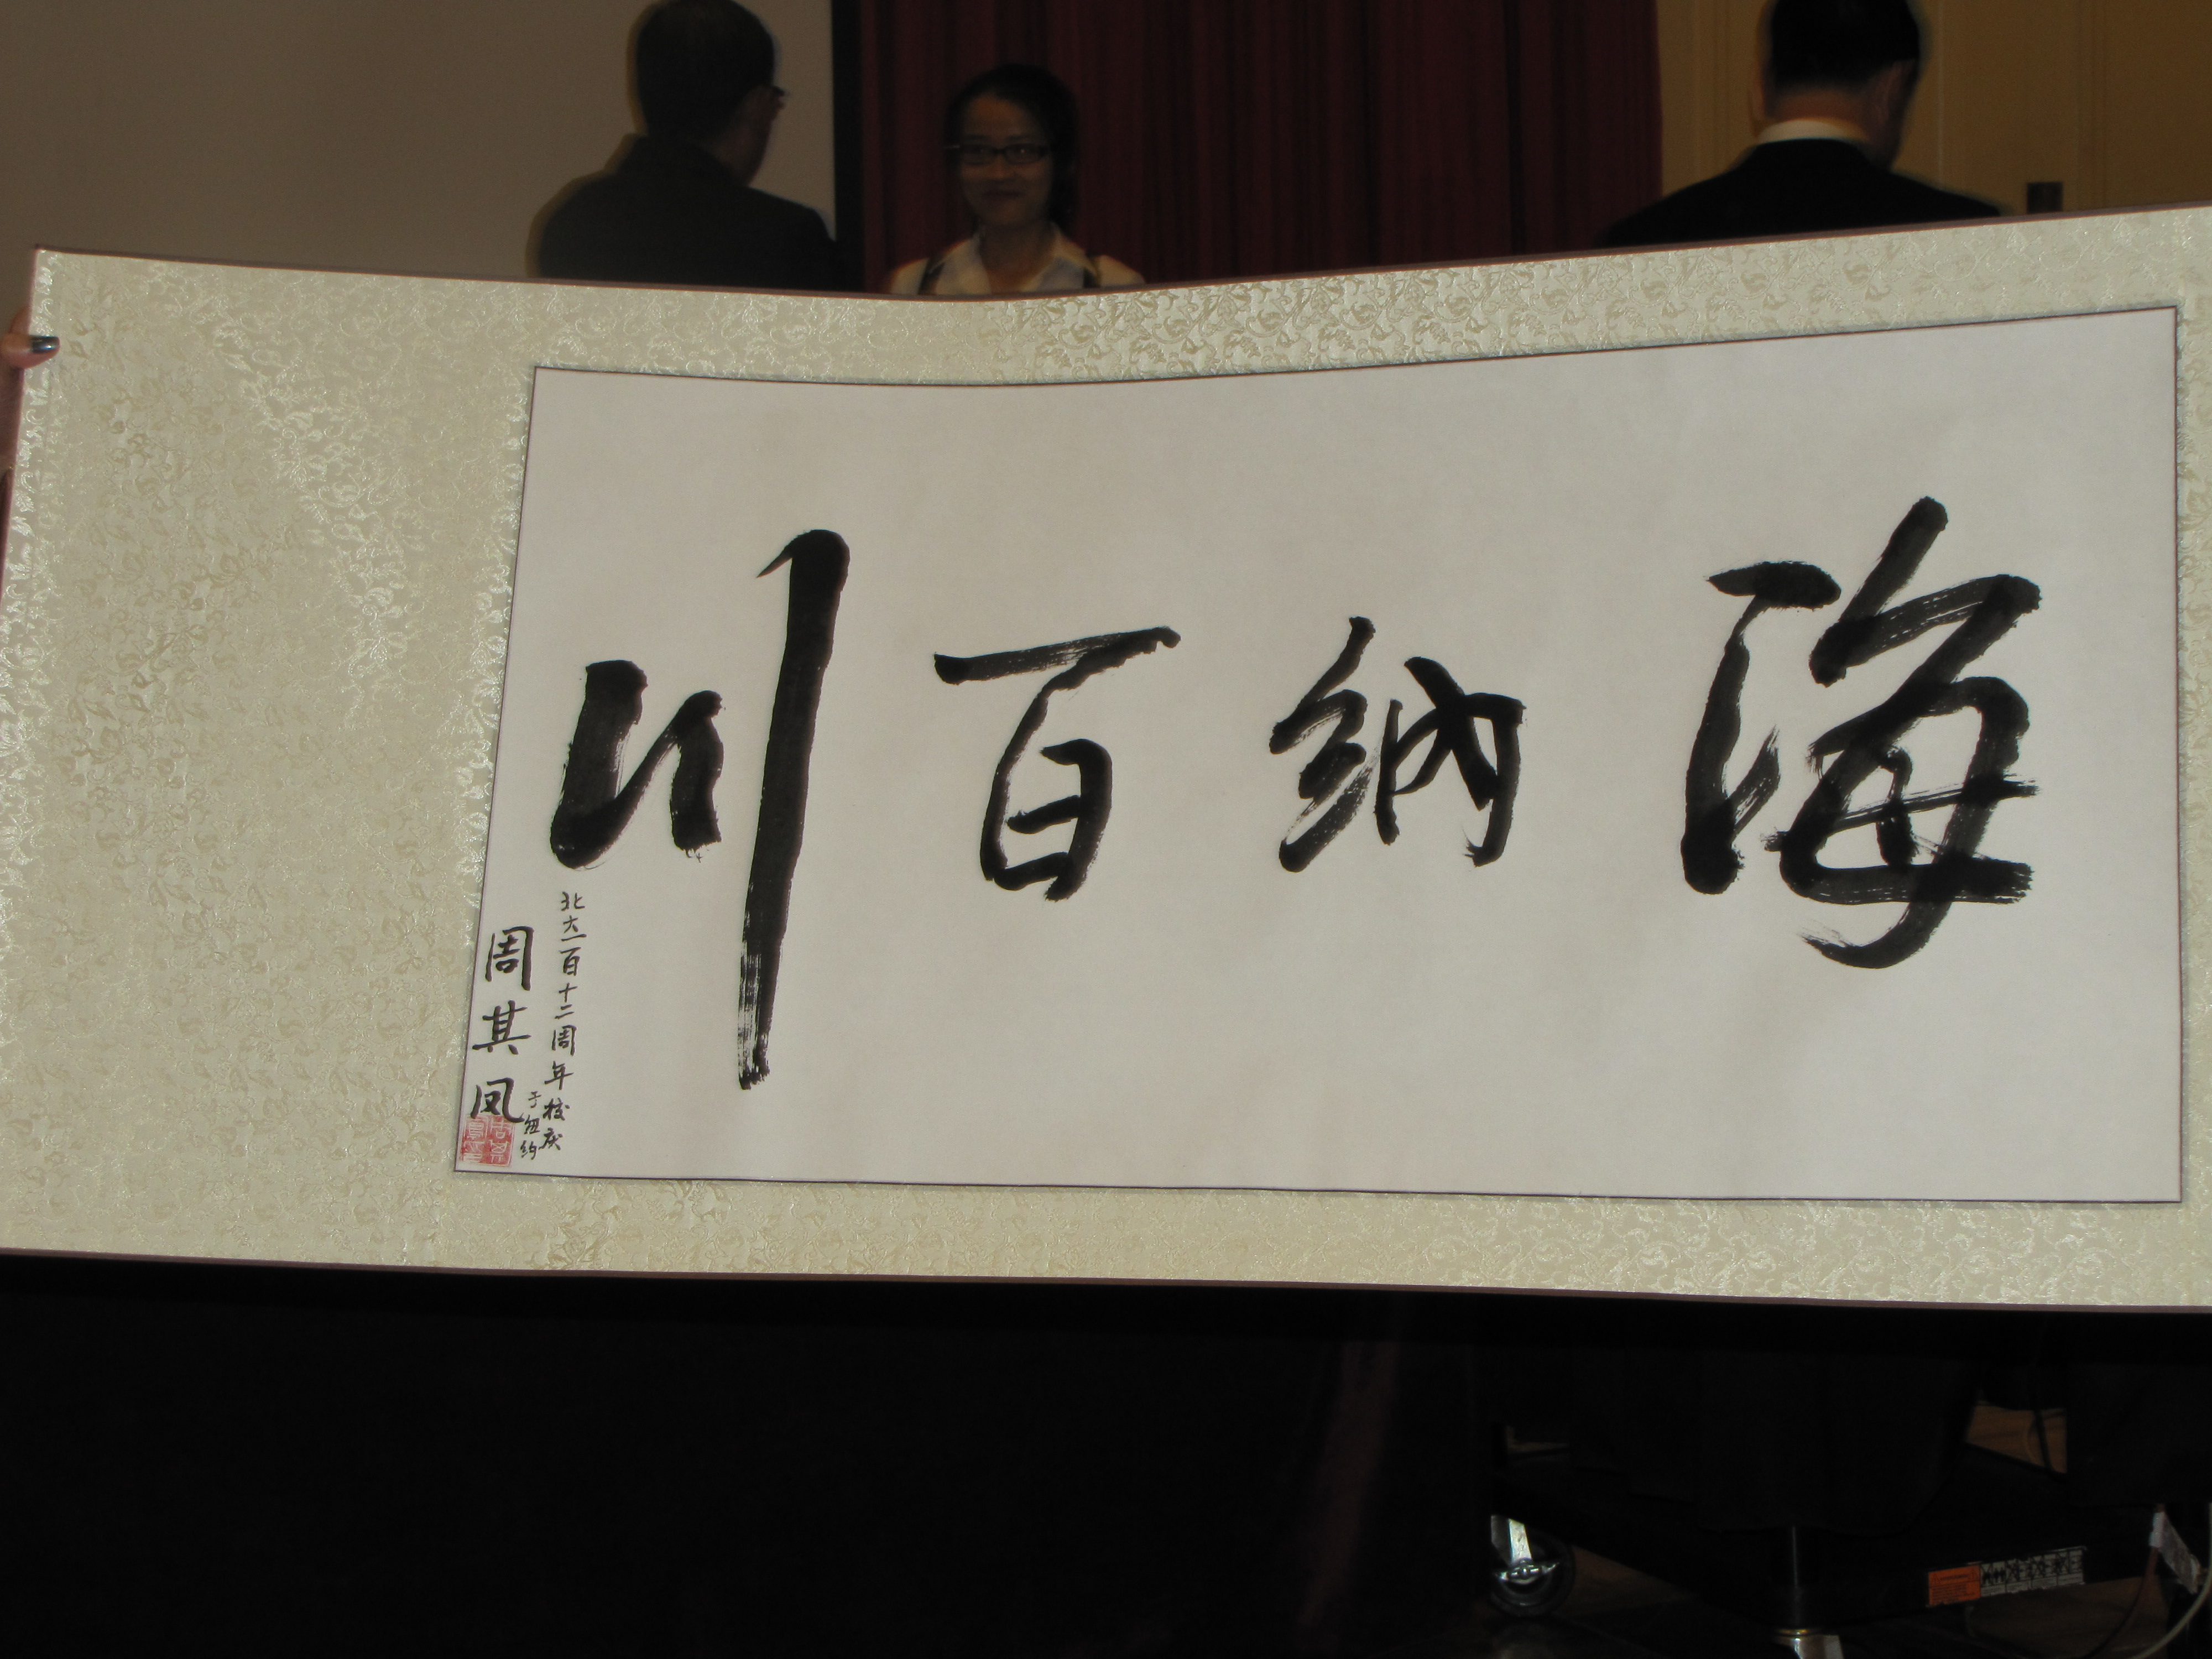 海纳百川
北大一百十二周年校庆
于纽约
周其凤